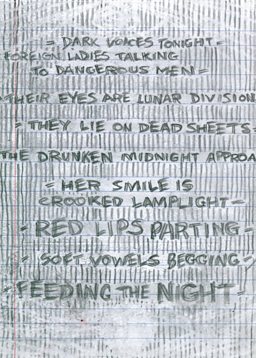 = DARK VOICES TONIGHT =
FOREIGN LADIES TALKING
TO DANGEROUS MEN =
THEIR EYES ARE LUNAR DIVISION
= THEY LIE ON DEAD SHEETS =
THE DRUNKEN MIDNIGHT APPROA
= HER SMILE IS
CROOKED LAMPLIGHT =
= RED LIPS PARTING =
= SOFT VOWELS BEGGING =
= FEEDING THE NIGHT =